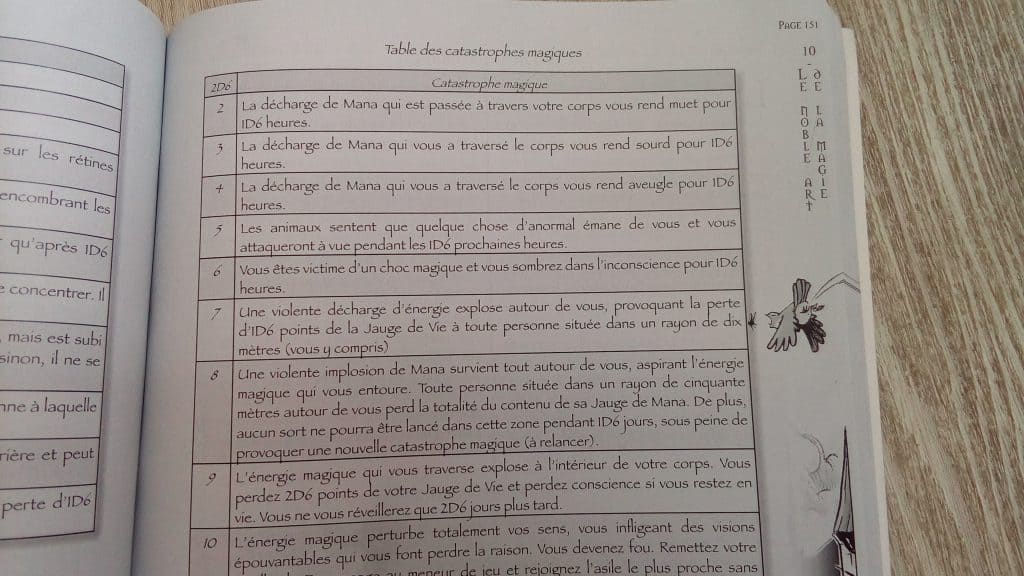 sur les rétines
encombrant les
qu'après 1D6
concentrer. Il
mais est subi
sinon, il ne se
à laquelle
et peut
perte d'1D6
PAGE 151
10 - LE NOBLE ART
DE LA MAGIE
Table des catastrophes magiques
2D6 Catastrophe magique
2 La décharge de Mana qui est passée à travers votre corps vous rend muet pour
1D6 heures.
3 La décharge de Mana qui vous a traversé le corps vous rend sourd pour 1D6
heures.
4 La décharge de Mana qui vous a traversé le corps vous rend aveugle pour 1D6
heures.
5 Les animaux sentent que quelque chose d'anormal émane de vous et vous
attaqueront à vue pendant les 1D6 prochaines heures.
6 Vous êtes victime d'un choc magique et vous sombrez dans l'inconscience pour 1D6
heures.
7 Une violente décharge d'énergie explose autour de vous, provoquant la perte
d'1D6 points de la Jauge de Vie à toute personne située dans un rayon de dix
mètres (vous y compris)
8 Une violente implosion de Mana survient tout autour de vous, aspirant l'énergie
magique qui vous entoure. Toute personne située dans un rayon de cinquante
mètres autour de vous perd la totalité du contenu de sa Jauge de Mana. De plus,
aucun sort ne pourra être lancé dans cette zone pendant 1D6 jours, sous peine de
provoquer une nouvelle catastrophe magique (à relancer).
9 L'énergie magique qui vous traverse explose à l'intérieur de votre corps. Vous
perdez 2D6 points de votre Jauge de Vie et perdez conscience si vous restez en
vie. Vous ne vous réveillerez que 2D6 jours plus tard.
10 L'énergie magique perturbe totalement vos sens, vous infligeant des visions
épouvantables qui vous font perdre la raison. Vous devenez fou. Remettez votre
au meneur de jeu et rejoignez l'asile le plus proche sans